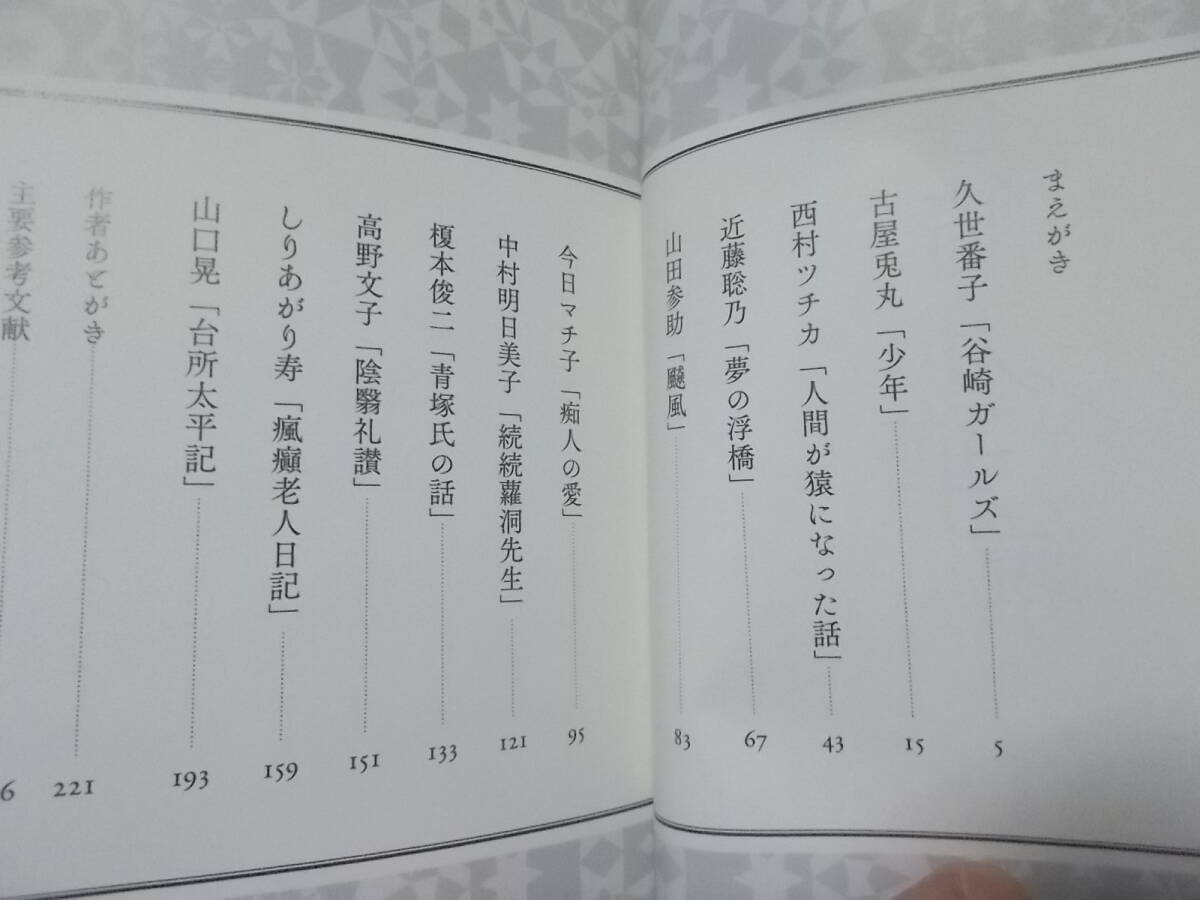 まえがき
久世番子「谷崎ガールズ」 5
古屋兎丸「少年」 15
西村ツチカ「人間が猿になった話」 43
近藤聡乃「夢の浮橋」 67
山田参助「飇風」 83
今日マチ子「痴人の愛」 95
中村明日美子「続続蘿洞先生」 121
榎本俊二「青塚氏の話」 133
高野文子「陰翳礼讃」 151
しりあがり寿「瘋癲老人日記」 159
山口晃「台所太平記」 193
作者あとがき 221
主要参考文献 6